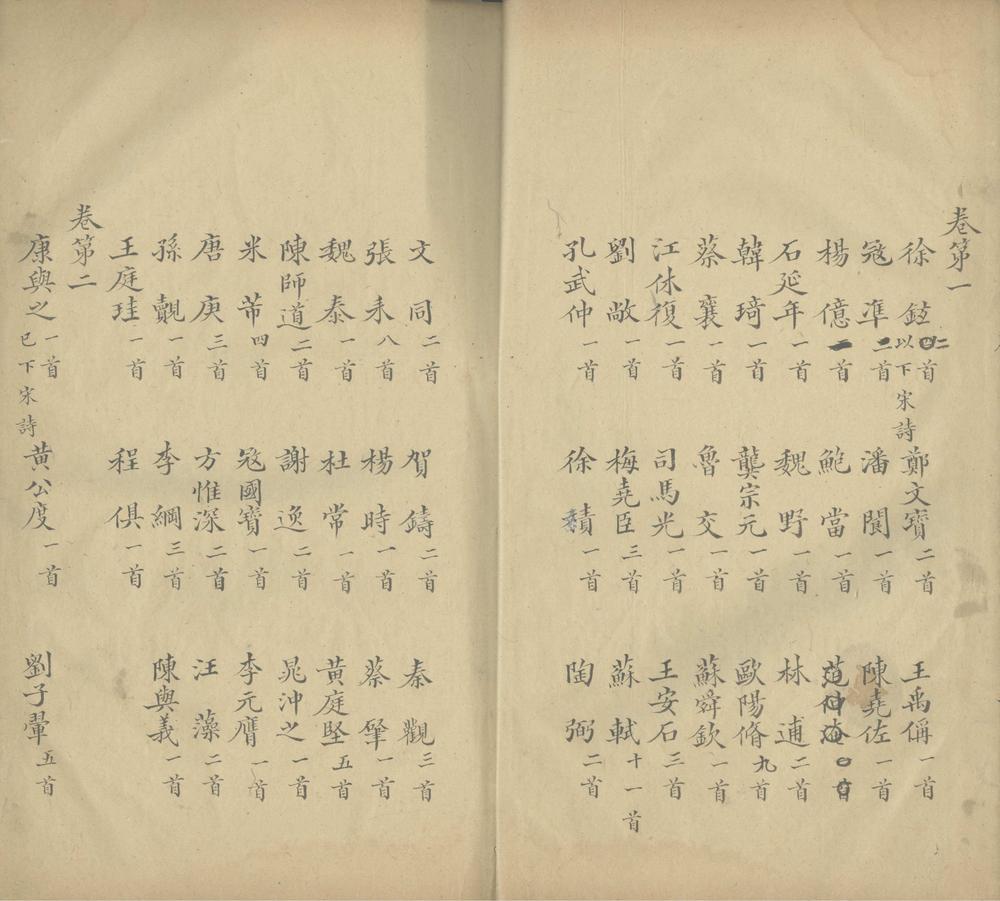 卷第一
徐鉉二首 以下宋詩 鄭文寶二首 王禹偁一首
寇凖二首 潘閬一首 陳堯佐一首
楊億一首 鮑當一首
石延年一首 魏野一首 林逋二首
韓琦一首 龔宗元一首 歐陽脩九首
蔡襄一首 魯交一首 蘇舜欽一首
江休復一首 司馬光一首 王安石三首
劉敞一首 梅堯臣三首 蘇軾十一首
孔武仲一首 徐積一首 陶弼二首
文同二首 賀鑄二首 秦觀三首
張耒八首 楊時一首 蔡肇一首
魏泰一首 杜常一首 黃庭堅五首
陳師道二首 謝逸二首 晁沖之一首
米芾四首 寇國寶一首 李元膺一首
唐庚三首 方惟深二首 汪藻二首
孫覿一首 李綱三首 陳與義一首
王庭珪一首 程俱一首
卷第二
康與之一首 已下宋詩 黃公度一首 劉子翬五首